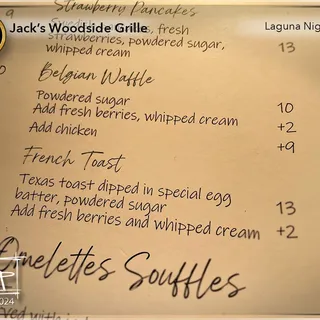 9
Strawberry Pancakes
Jack's Woodside Grille
Laguna Nig
fresh
strawberries, powdered sugar,
whipped cream 13
0
Belgian Waffle
Powdered sugar 10
Add fresh berries, whipped cream +2
Add chicken +9
French Toast
Texas toast dipped in special egg
batter, powdered sugar 13
Add fresh berries and whipped cream +2
Omelettes Souffles
2024